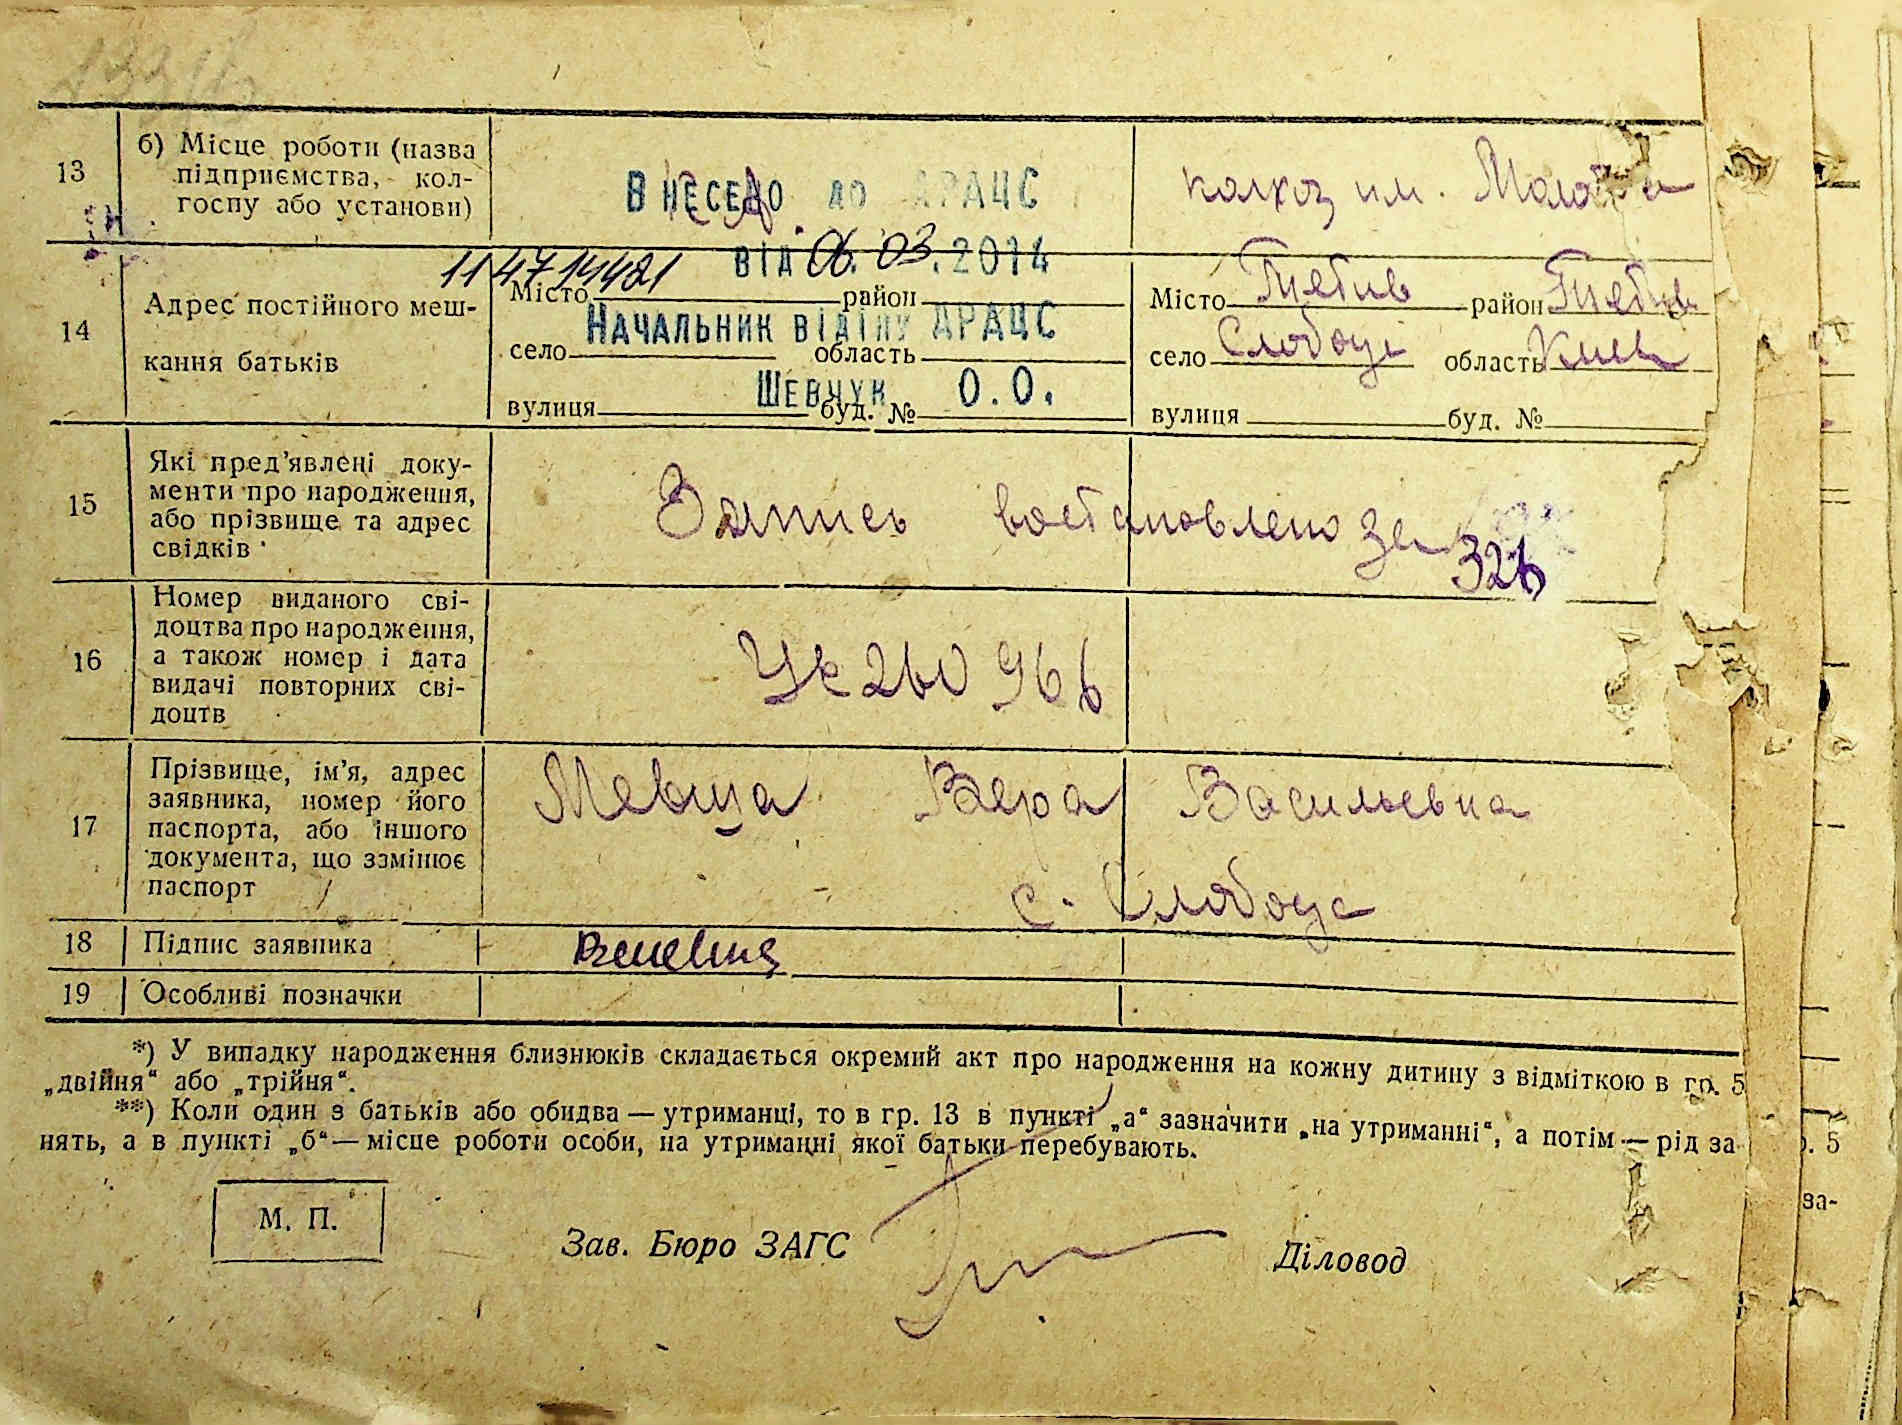 13
б) Місце роботи (назва
підприємства, кол-
госпу або установи)
Внесено до ДРАЦС
від 06.03.2014
114714421
Начальник відділу ДРАЦС
Шевчук О.О.
колхоз им. Молотова
14
Адрес постійного меш-
кання батьків
Місто район
село область
вулиця буд. №
Місто район
село Слобода область Киев
вулиця буд. №
15
Які пред’явлені доку-
менти про народження,
або прізвище та адрес
свідків
Запись востановлено за 326
16
Номер виданого сві-
доцтва про народження,
а також номер і дата
видачі повторних сві-
доцтв
260 966
17
Прізвище, ім’я, адрес
заявника, номер його
паспорта, або іншого
документа, що заміняє
паспорт
Вера Васильевна
с. Слобода
18 Підпис заявника
19 Особливі позначки
*) У випадку народження близнюків складається окремий акт про народження на кожну дитину з відміткою в гр. 5
„двійня“ або „трійня“.
**) Коли один з батьків або обидва — утриманці, то в гр. 13 в пункті „а“ зазначити „на утриманні“, а потім — рід за
нять, а в пункті „б“ — місце роботи особи, на утриманні якої батьки перебувають.
. 5
за-
М. П.
Зав. Бюро ЗАГС
Діловод